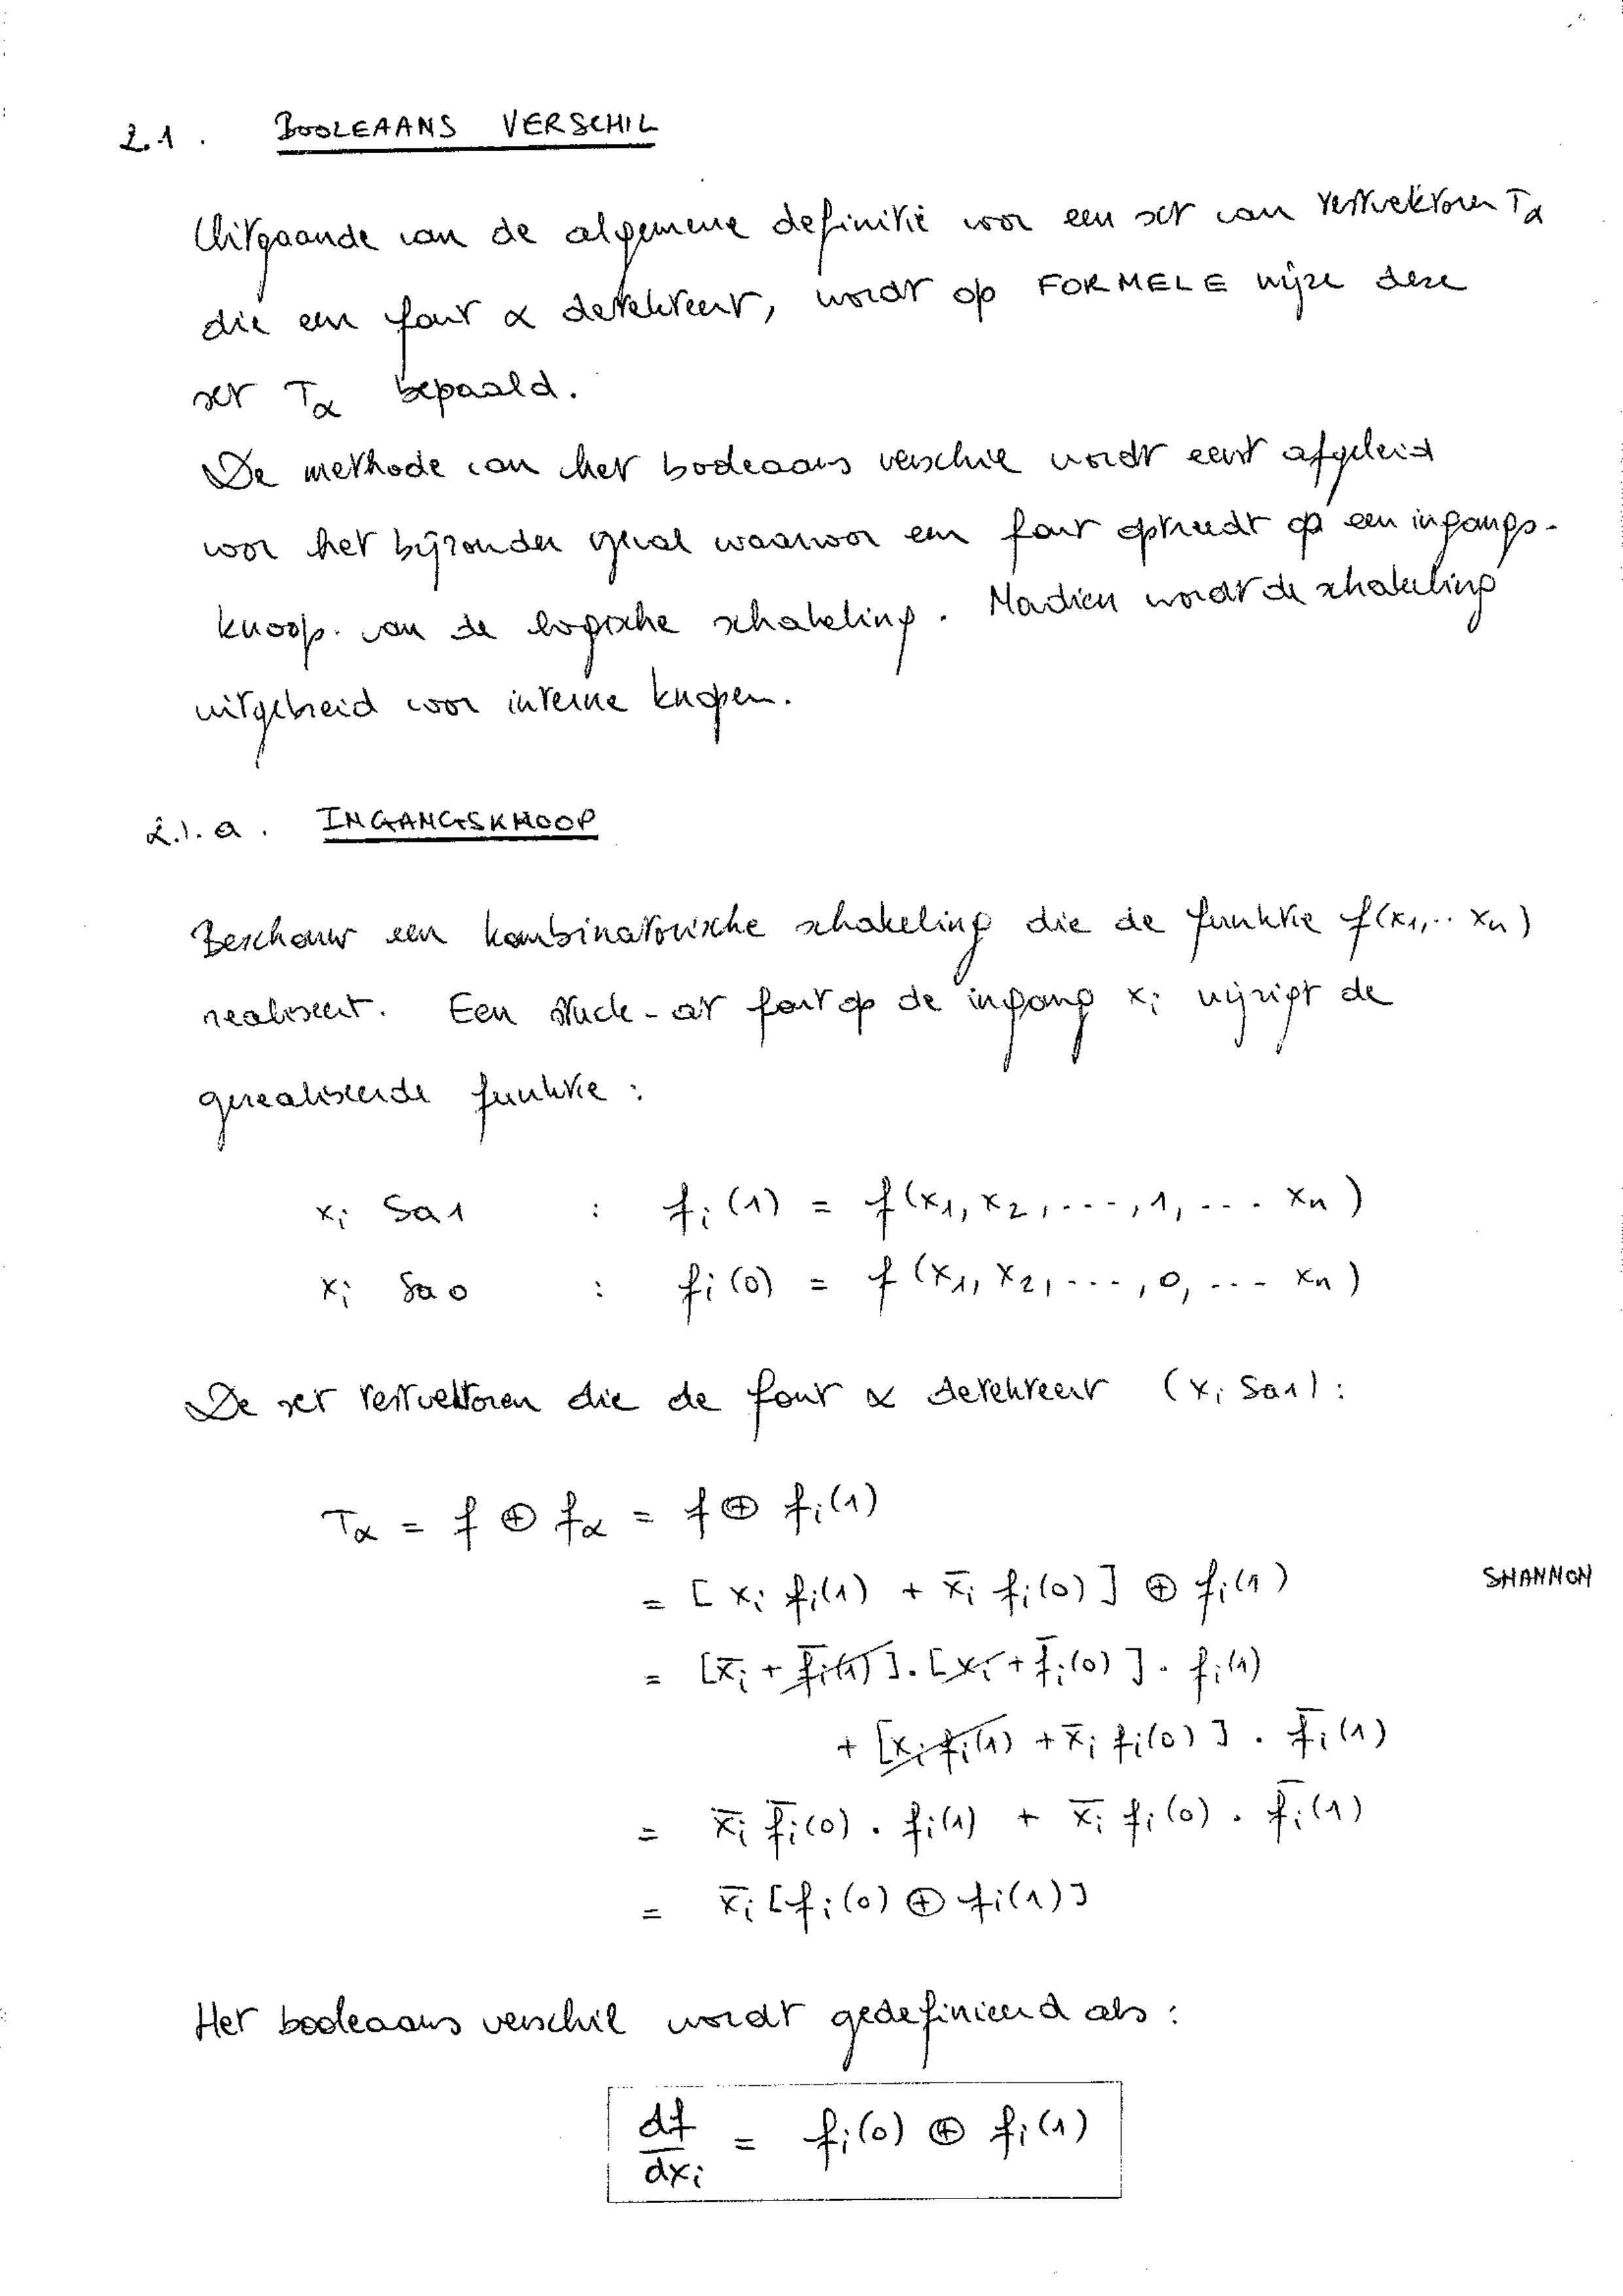 2.1. BOOLEAANS VERSCHIL
Uitgaande van de algemene definitie voor een set van testvektoren Tα
die een fout α detekteert, wordt op FORMELE wijze deze
set Tα bepaald.
De methode van het booleaans verschil wordt eerst afgeleid
voor het bijzonder geval waarvoor een fout optreedt op een ingangs-
knoop van de logische schakeling. Nadien wordt de schakeling
uitgebreid voor interne knopen.
2.1.a. INGANGSKNOOP
Beschouw een kombinatorische schakeling die de funktie f(x₁,.. xₙ)
realiseert. Een stuck-at fout op de ingang xᵢ wijzigt de
gerealiseerde funktie :
xᵢ Sa1 : fᵢ(1) = f(x₁, x₂, ..., 1, ... xₙ)
xᵢ Sa0 : fᵢ(0) = f(x₁, x₂, ..., 0, ... xₙ)
De set testvektoren die de fout α detekteert (xᵢ Sa1) :
Tα = f ⊕ fα = f ⊕ fᵢ(1)
= [xᵢ fᵢ(1) + x̄ᵢ fᵢ(0)] ⊕ fᵢ(1) SHANNON
= [x̄ᵢ + f̄ᵢ(1)] . [xᵢ + f̄ᵢ(0)] . fᵢ(1)
+ [xᵢ fᵢ(1) + x̄ᵢ fᵢ(0)] . f̄ᵢ(1)
= x̄ᵢ f̄ᵢ(0) . fᵢ(1) + x̄ᵢ fᵢ(0) . f̄ᵢ(1)
= x̄ᵢ [fᵢ(0) ⊕ fᵢ(1)]
Het booleaans verschil wordt gedefinieerd als :
df/dxᵢ = fᵢ(0) ⊕ fᵢ(1)